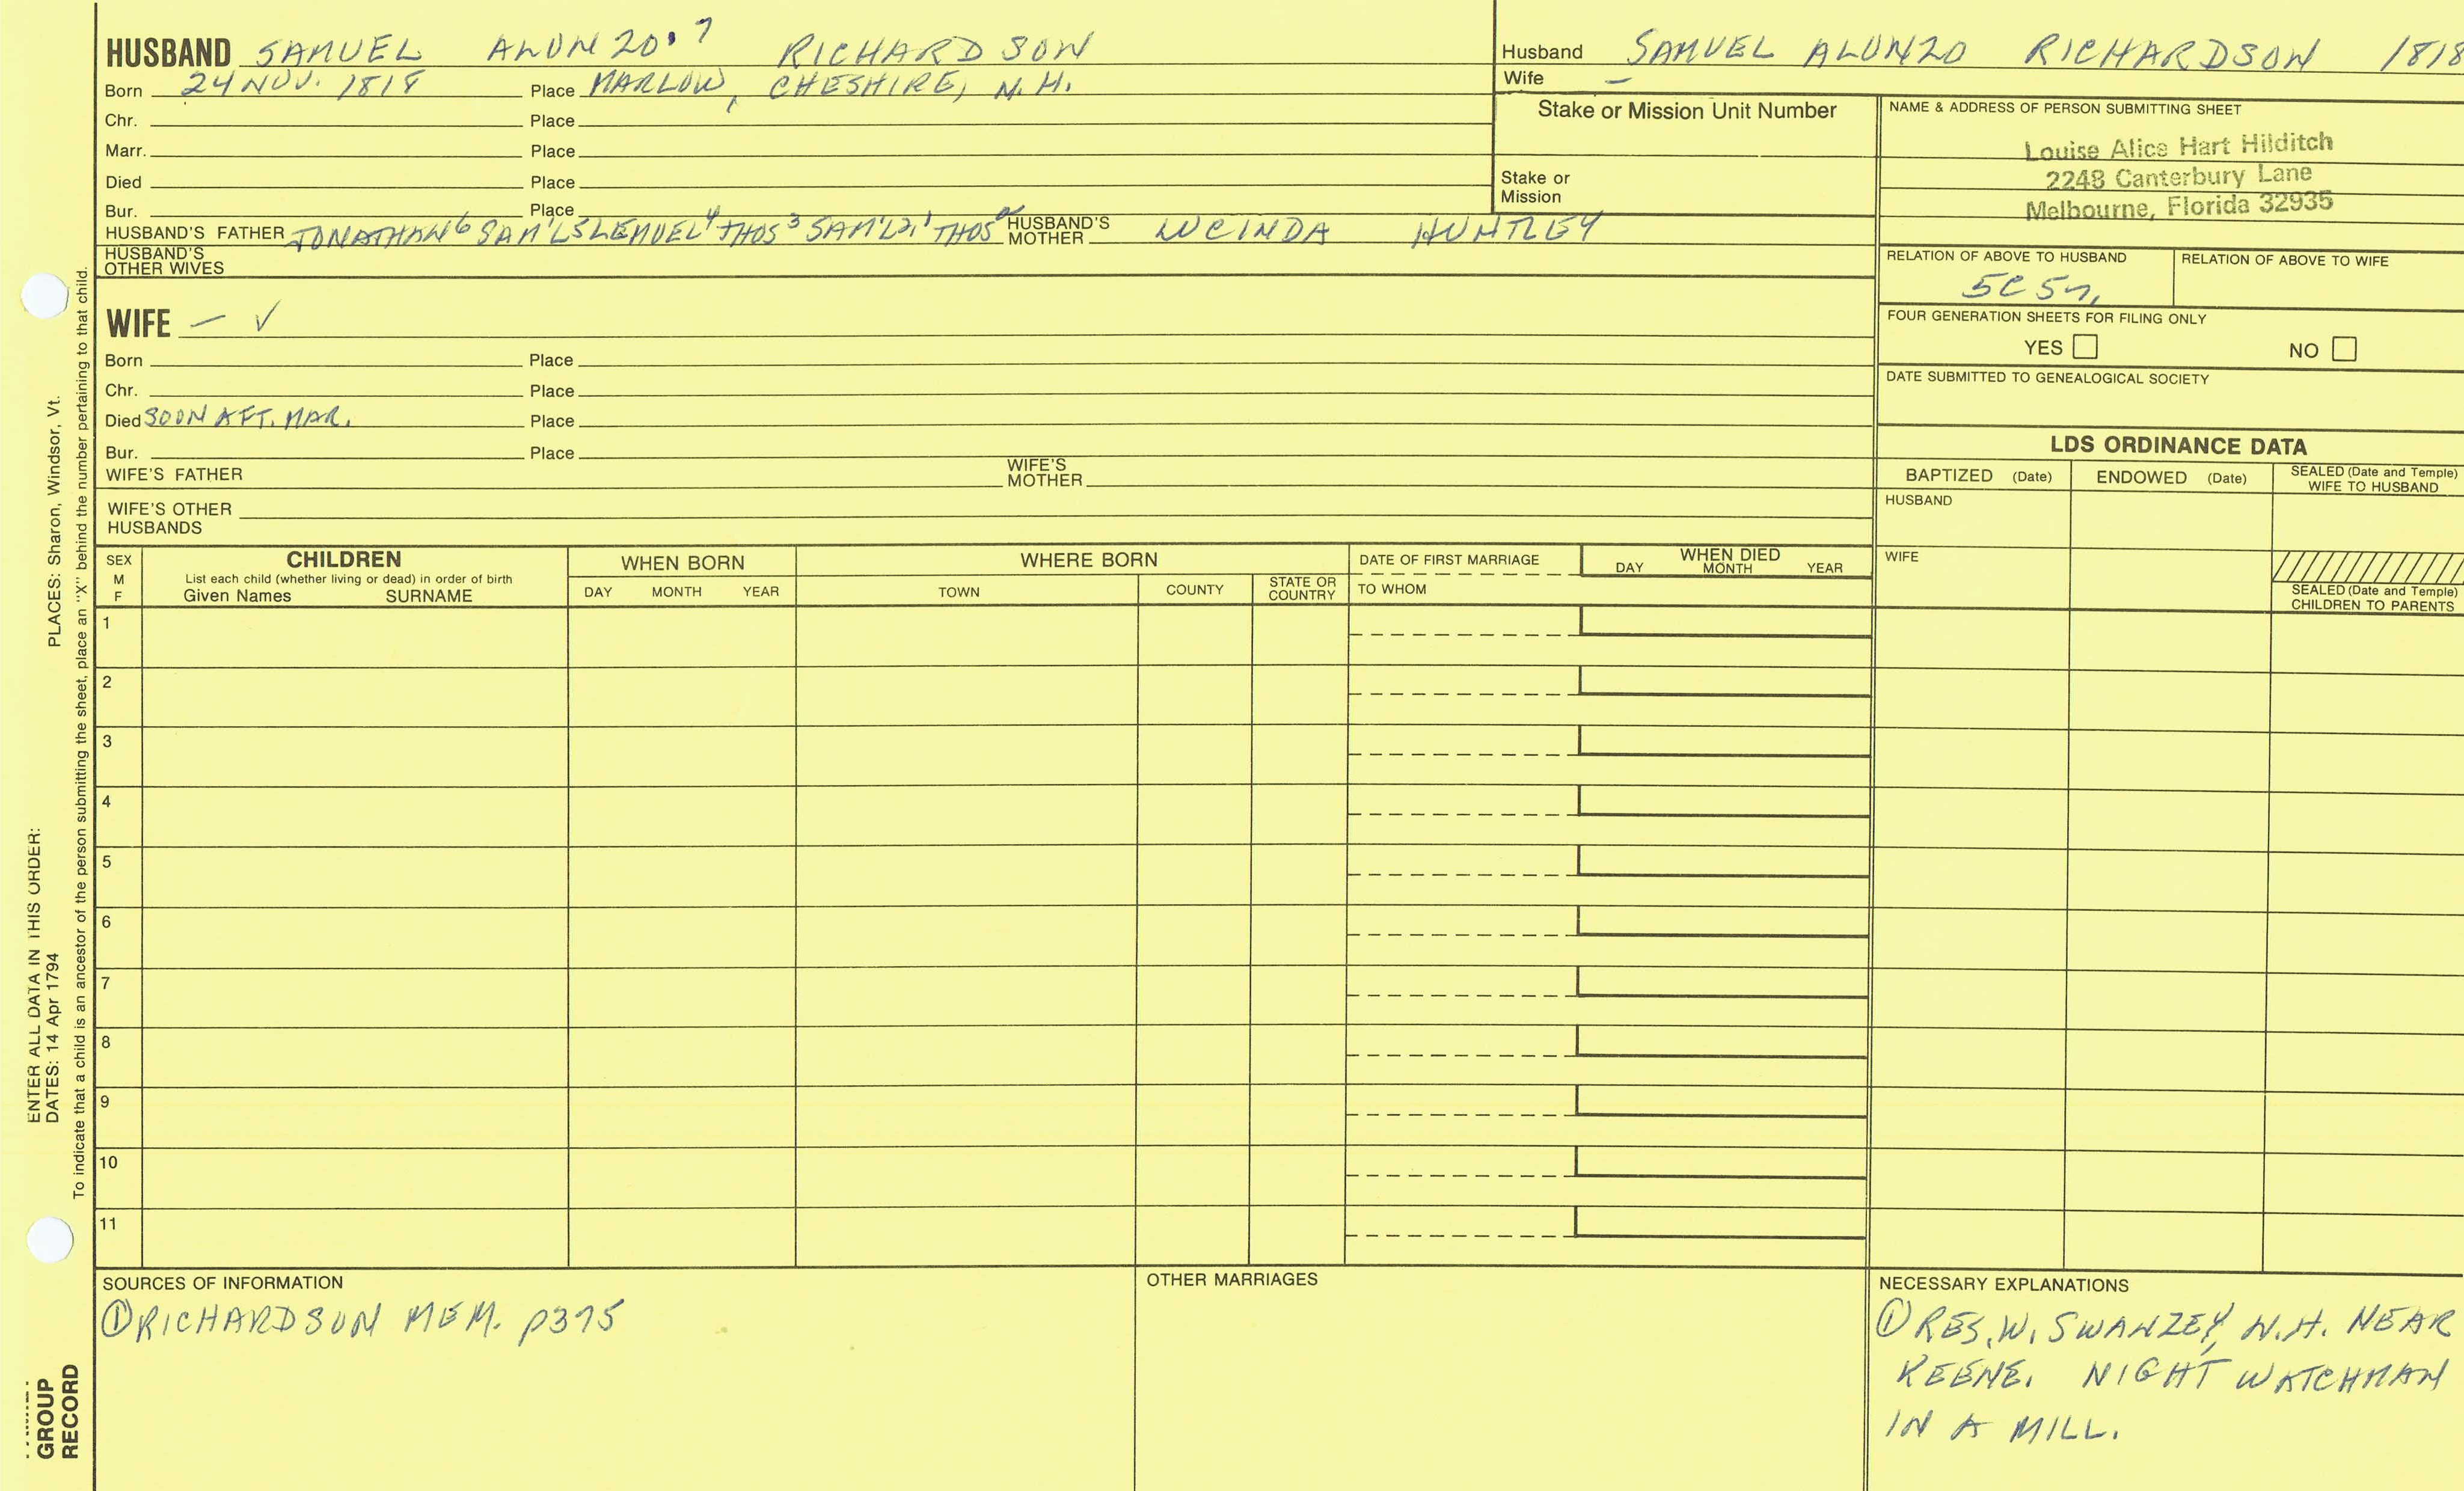 HUSBAND SAMUEL ALONZO 7 RICHARDSON
Born 24 NOV. 1818 Place MARLOW, CHESHIRE, N.H.
Chr. Place
Marr. Place
Died Place
Bur. Place
HUSBAND'S FATHER JONATHAN 6 SAM'L 5 LEMUEL 4 THOS 3 SAM'L 2 THOS 1 HUSBAND'S MOTHER LUCINDA HUNTLEY
HUSBAND'S OTHER WIVES
Husband SAMUEL ALONZO RICHARDSON 1818
Wife –
Stake or Mission Unit Number
Stake or Mission
NAME & ADDRESS OF PERSON SUBMITTING SHEET
Louise Alice Hart Hilditch
2248 Canterbury Lane
Melbourne, Florida 32935
RELATION OF ABOVE TO HUSBAND RELATION OF ABOVE TO WIFE
FOUR GENERATION SHEETS FOR FILING ONLY
YES NO
DATE SUBMITTED TO GENEALOGICAL SOCIETY
WIFE – ✓
Born Place
Chr. Place
Died SOON AFT. MAR. Place
Bur. Place
WIFE'S FATHER WIFE'S MOTHER
WIFE'S OTHER HUSBANDS
LDS ORDINANCE DATA
BAPTIZED (Date) ENDOWED (Date) SEALED (Date and Temple) WIFE TO HUSBAND
HUSBAND
WIFE
SEALED (Date and Temple) CHILDREN TO PARENTS
SEX M F
CHILDREN
List each child (whether living or dead) in order of birth
Given Names SURNAME
WHEN BORN
DAY MONTH YEAR
WHERE BORN
TOWN COUNTY STATE OR COUNTRY
DATE OF FIRST MARRIAGE
TO WHOM
WHEN DIED
DAY MONTH YEAR
1
2
3
4
5
6
7
8
9
10
11
SOURCES OF INFORMATION
① RICHARDSON MEM. p375
OTHER MARRIAGES
NECESSARY EXPLANATIONS
① RES. W. SWANZEY, N.H. NEAR
KEENE. NIGHT WATCHMAN
IN A MILL.
ENTER ALL DATA IN THIS ORDER:
DATES: 14 Apr 1794 PLACES: Sharon, Windsor, Vt.
To indicate that a child is an ancestor of the person submitting the sheet, place an "X" behind the number pertaining to that child.
GROUP
RECORD